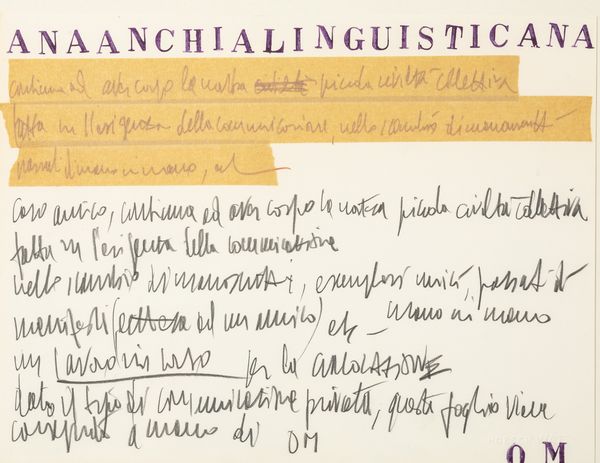 ANAANCHIALINGUISTICANA
continua ad aver corpo la nostra piccola civiltà collettiva
fatta su l'esigenza della comunicazione, nello scambio di manoscritti
passati di mano in mano, ed
caro amico, continua ad aver corpo la nostra piccola civiltà collettiva
fatta su l'esigenza della comunicazione
nello scambio di manoscritti, esemplari unici, passati di
mano in mano
manifesti ( ad un amico) etc –
un lavoro in corso per la CIRCOLAZIONE
dato il tipo di comunicazione privata, questo foglio viene
consegnato a mano di OM
OM